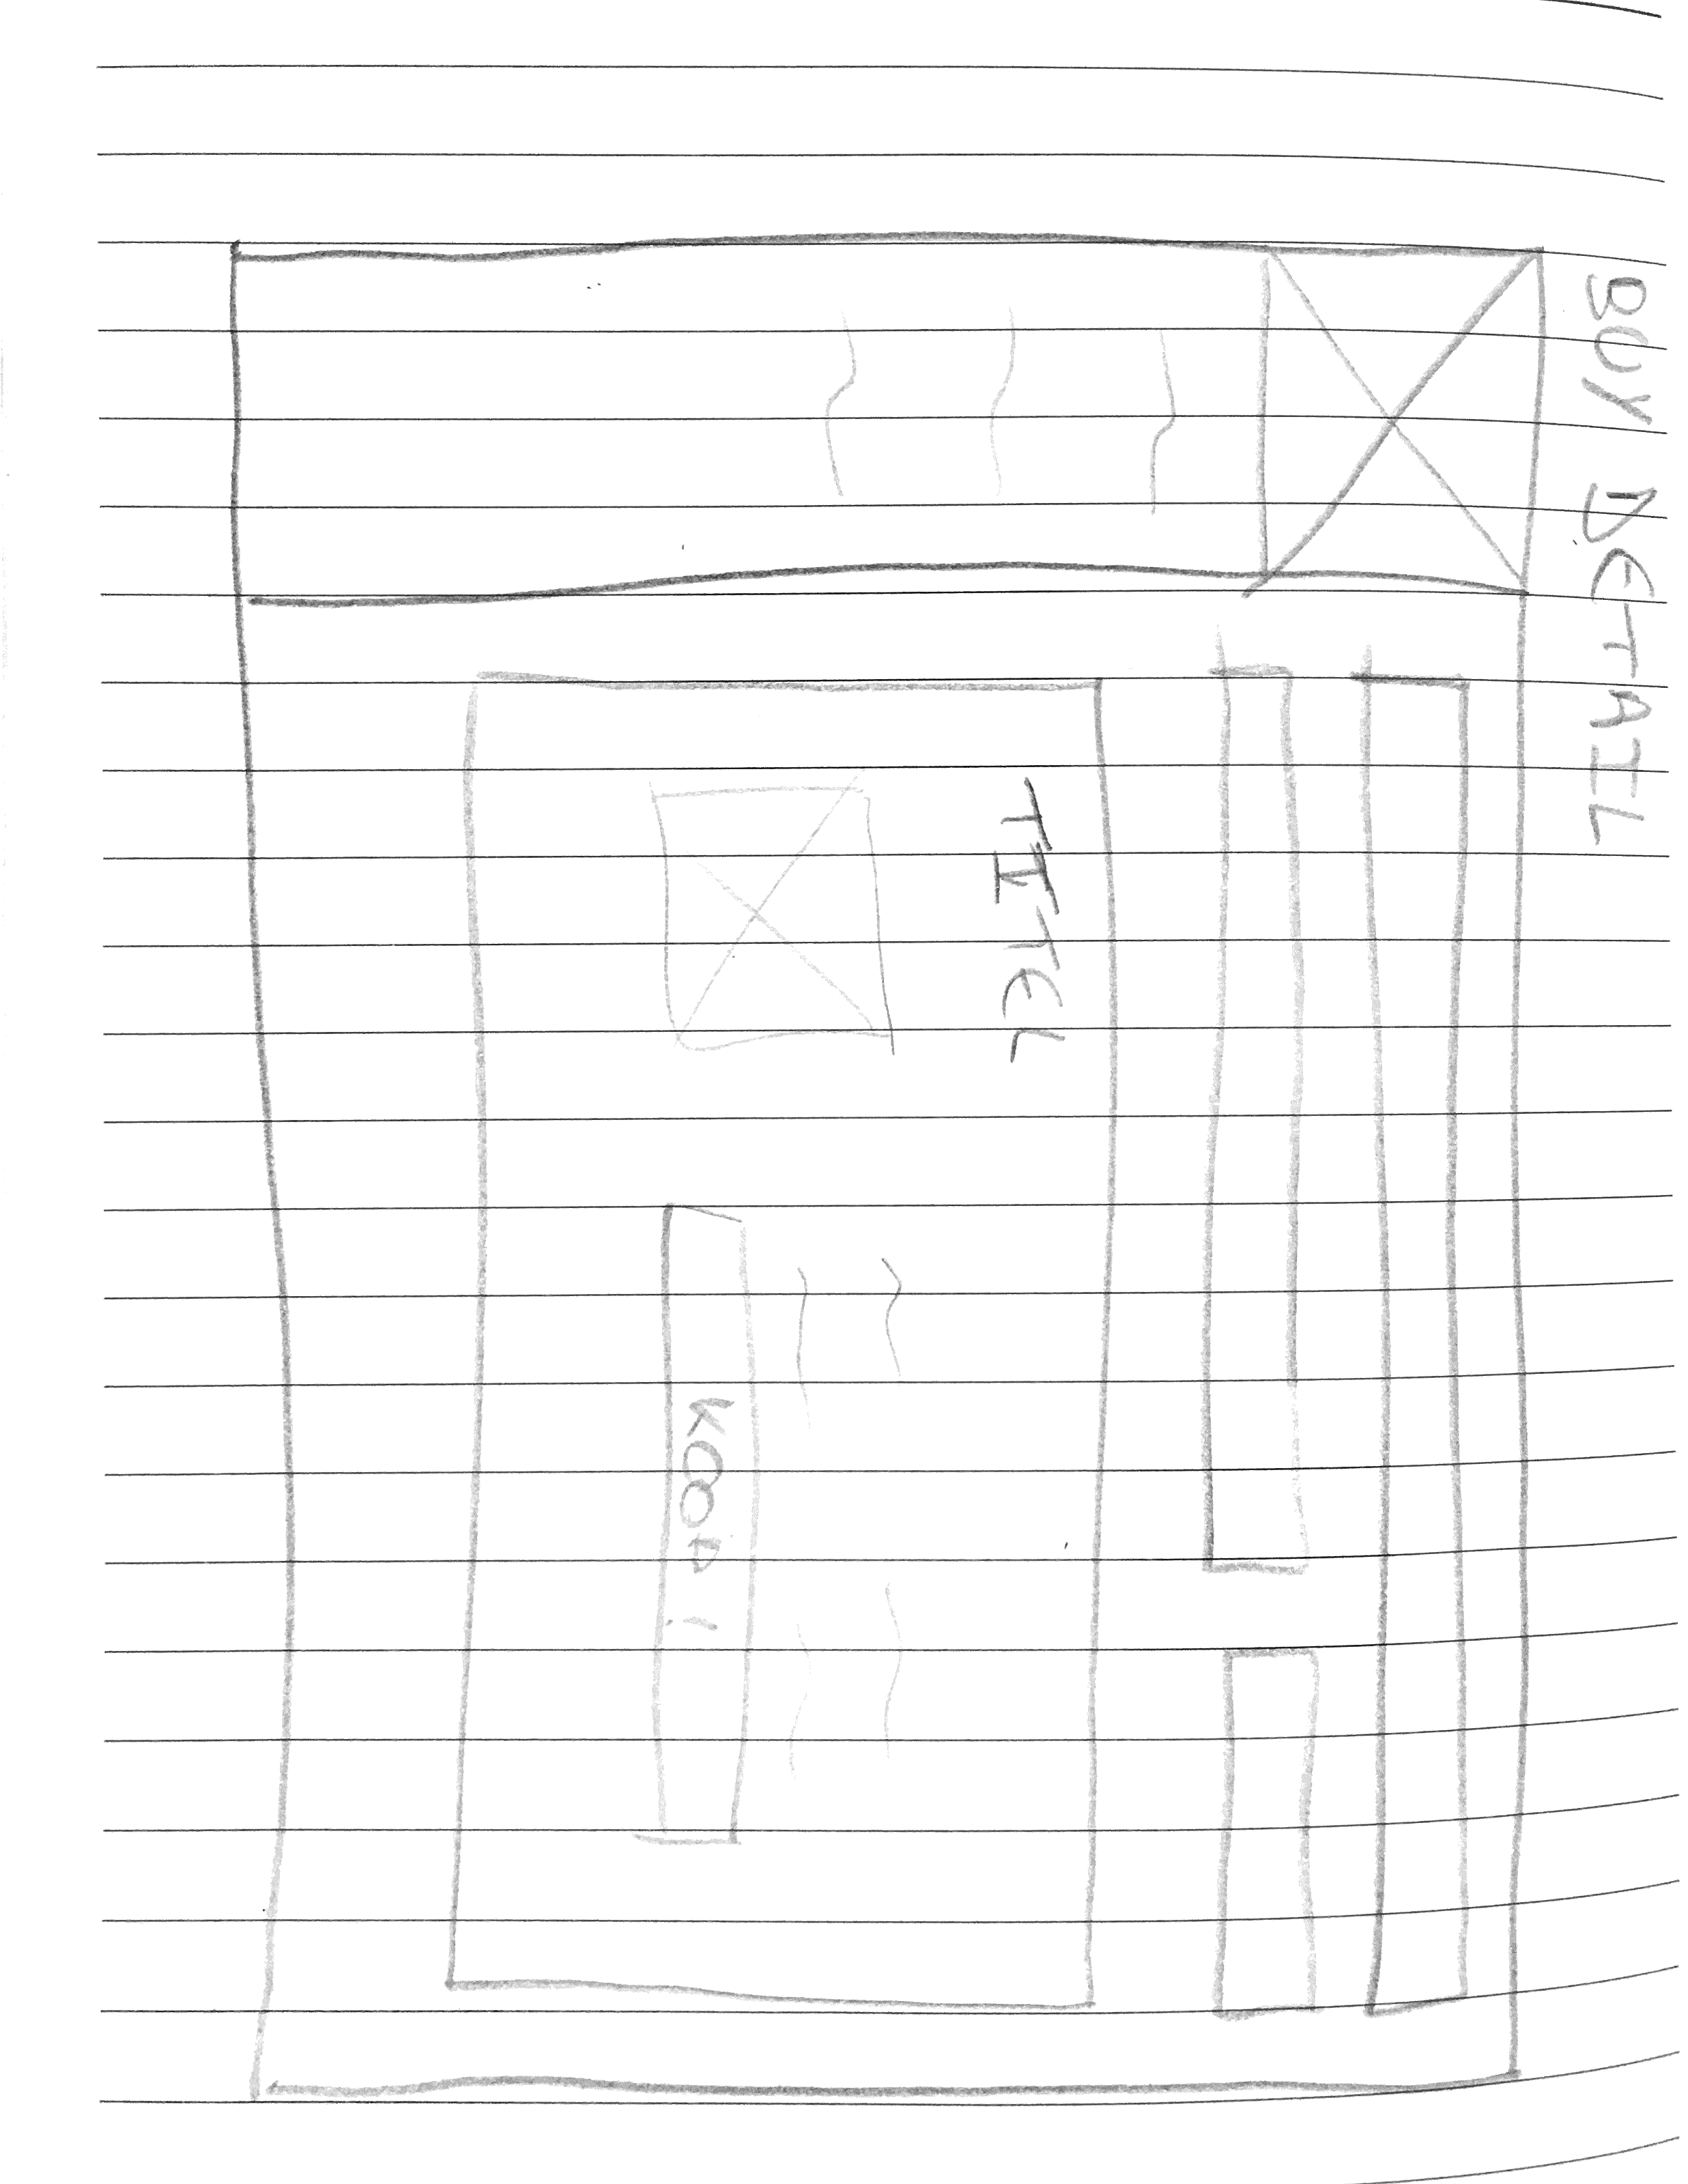 BUY DETAIL
TITEL
KOOP !